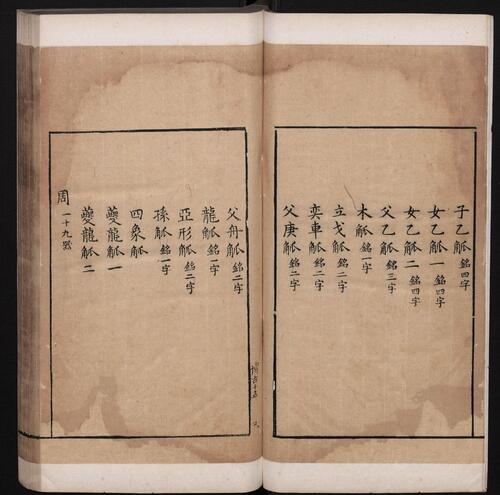 子乙觚銘四字
女乙觚一銘四字
女乙觚二銘四字
父乙觚銘三字
木觚銘一字
立戈觚銘二字
奕車觚銘二字
父庚觚銘二字
父舟觚銘二字
龍觚銘一字
亞形觚銘二字
孫觚銘一字
四象觚
夔龍觚一
夔龍觚二
周